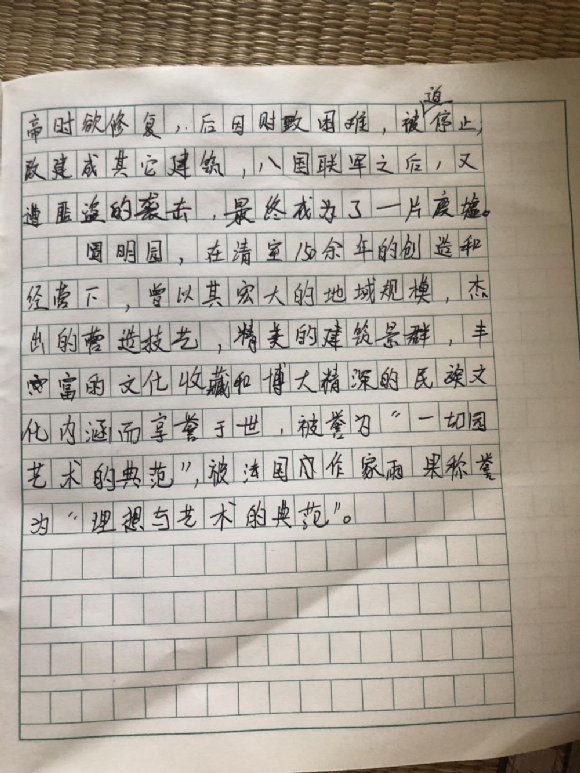 帝时欲修复，后因财政困难，被迫停止，
改建成其它建筑，八国联军之后，又
遭匪盗的袭击，最终成为了一片废墟。
圆明园，在清室150余年的创造和
经营下，曾以其宏大的地域规模，杰
出的营造技艺，精美的建筑景群，丰
富的文化收藏和博大精深的民族文
化内涵而享誉于世，被誉为“一切园
艺术的典范”，被法国作家雨果称誉
为“理想与艺术的典范”。